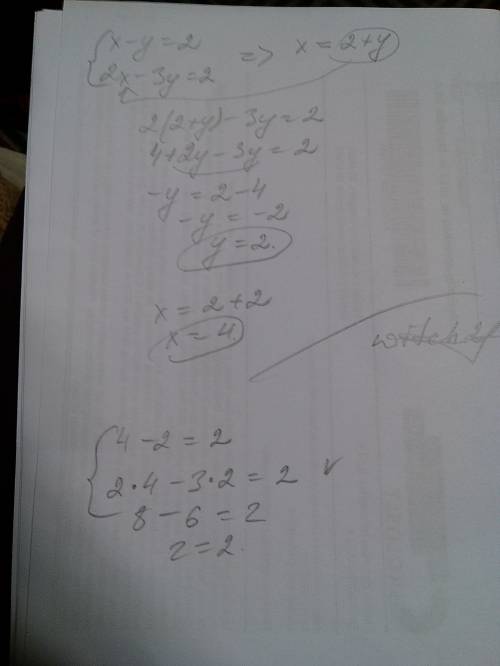 x - y = 2
2x - 3y = 2
=> x = 2+y
2(2+y) - 3y = 2
4+2y - 3y = 2
-y = 2 - 4
-y = -2
y = 2.
x = 2 + 2
x = 4.
4 - 2 = 2
2·4 - 3·2 = 2 v
8 - 6 = 2
2 = 2.